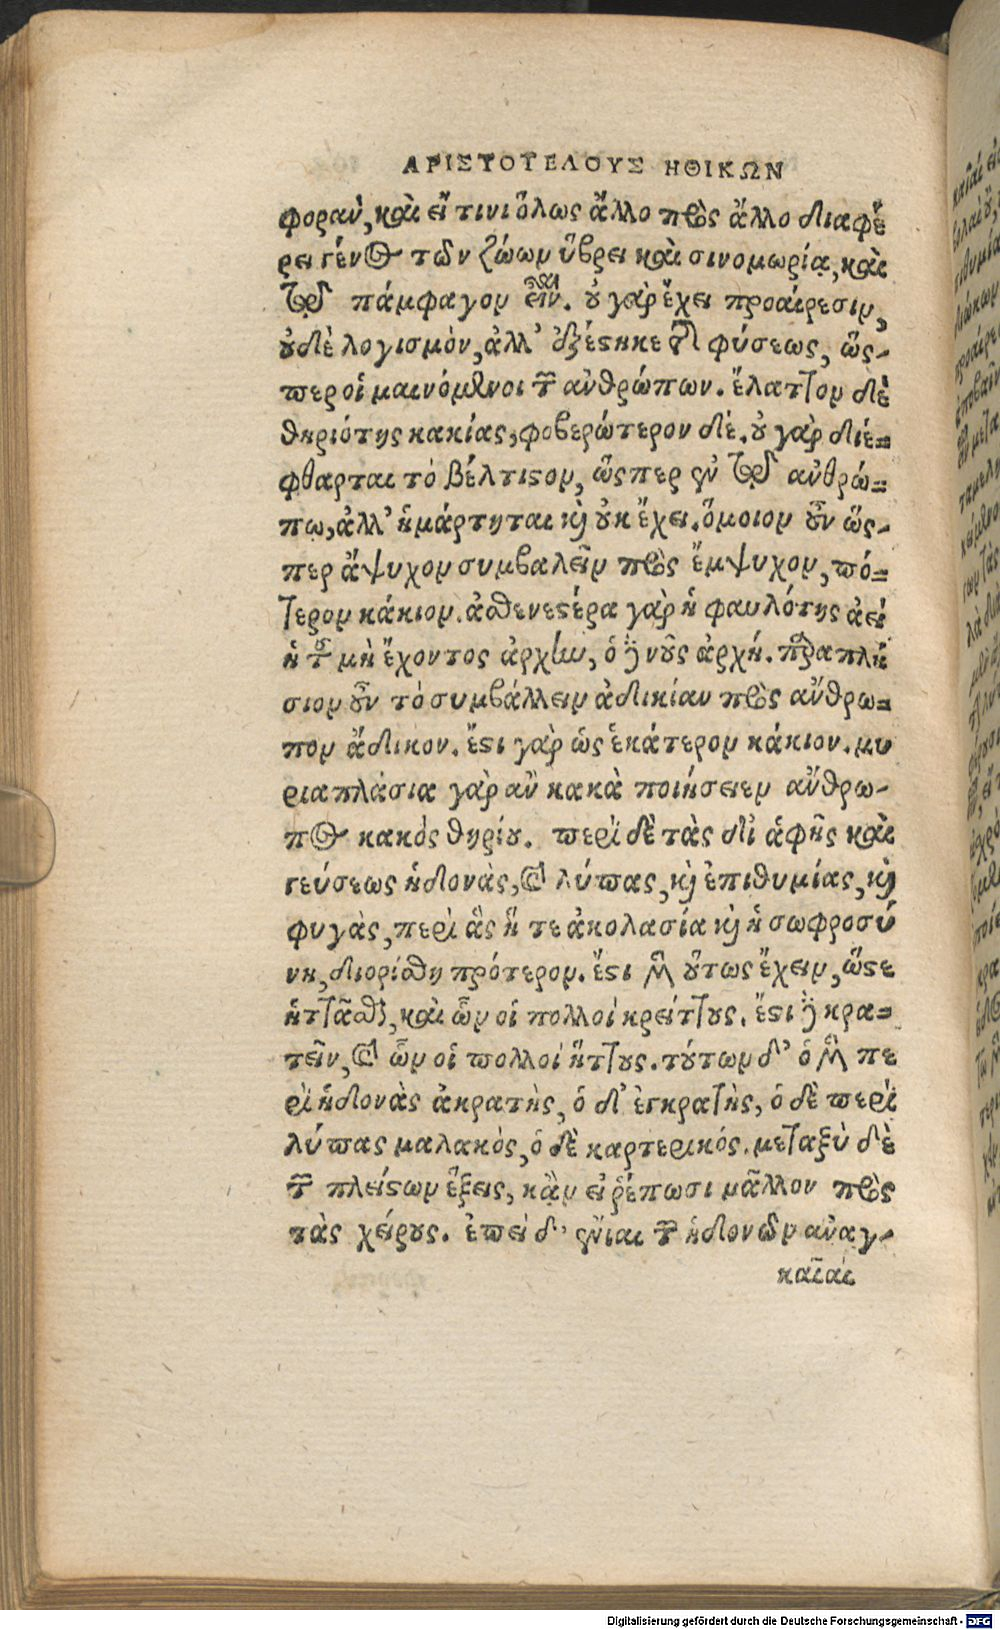 ΑΡΙΣΤΟΤΕΛΟΥΣ ΗΘΙΚΩΝ
φορὰν, καὶ εἴ τινι ὅλως ἄλλο πρὸς ἄλλο διαφέ
ρει γένος τῶν ζώων ὕβρει καὶ σινομωρίᾳ, καὶ
τῷ πάμφαγον εἶναι. οὐ γὰρ ἔχει προαίρεσιν,
οὐδὲ λογισμὸν, ἀλλ' ἐξέστηκε τῆς φύσεως, ὥσ-
περ οἱ μαινόμενοι τῶν ἀνθρώπων. ἔλαττον δὲ
θηριότης κακίας, φοβερώτερον δέ. οὐ γὰρ διέ-
φθαρται τὸ βέλτιστον, ὥσπερ ἐν τῷ ἀνθρώ-
πῳ, ἀλλ' ἡμάρτηται καὶ οὐκ ἔχει. ὅμοιον οὖν ὥσ-
περ ἄψυχον συμβαλεῖν πρὸς ἔμψυχον, πό-
τερον κάκιον. ἀσθενεστέρα γὰρ ἡ φαυλότης ἀεὶ
ἡ τοῦ μὴ ἔχοντος ἀρχὴν, ὁ δὲ νοῦς ἀρχή. παραπλή
σιον οὖν τὸ συμβάλλειν ἀδικίαν πρὸς ἄνθρω-
πον ἄδικον. ἔστι γὰρ ὡς ἑκάτερον κάκιον. μυ
ριαπλάσια γὰρ ἂν κακὰ ποιήσειεν ἄνθρω-
πος κακὸς θηρίου. περὶ δὲ τὰς δι' ἁφῆς καὶ
γεύσεως ἡδονὰς, καὶ λύπας, καὶ ἐπιθυμίας, καὶ
φυγὰς, περὶ ἃς ἥ τε ἀκολασία καὶ ἡ σωφροσύ
νη, διορίσθη πρότερον. ἔστι μὲν οὕτως ἔχειν, ὥστε
ἡττᾶσθαι, καὶ ὧν οἱ πολλοὶ κρείττους. ἔστι δὲ κρα-
τεῖν, καὶ ὧν οἱ πολλοὶ ἥττους. τούτων δ' ὁ μὲν πε
ρὶ ἡδονὰς ἀκρατὴς, ὁ δ' ἐγκρατὴς, ὁ δὲ περὶ
λύπας μαλακὸς, ὁ δὲ καρτερικός. μεταξὺ δὲ
τῶν πλείστων ἕξεις, κἂν εἰ ῥέπωσι μᾶλλον πρὸς
τὰς χείρους. ἐπεὶ δ' ἔνιαι τῶν ἡδονῶν ἀναγ-
καῖαι
Digitalisierung gefördert durch die Deutsche Forschungsgemeinschaft - DFG